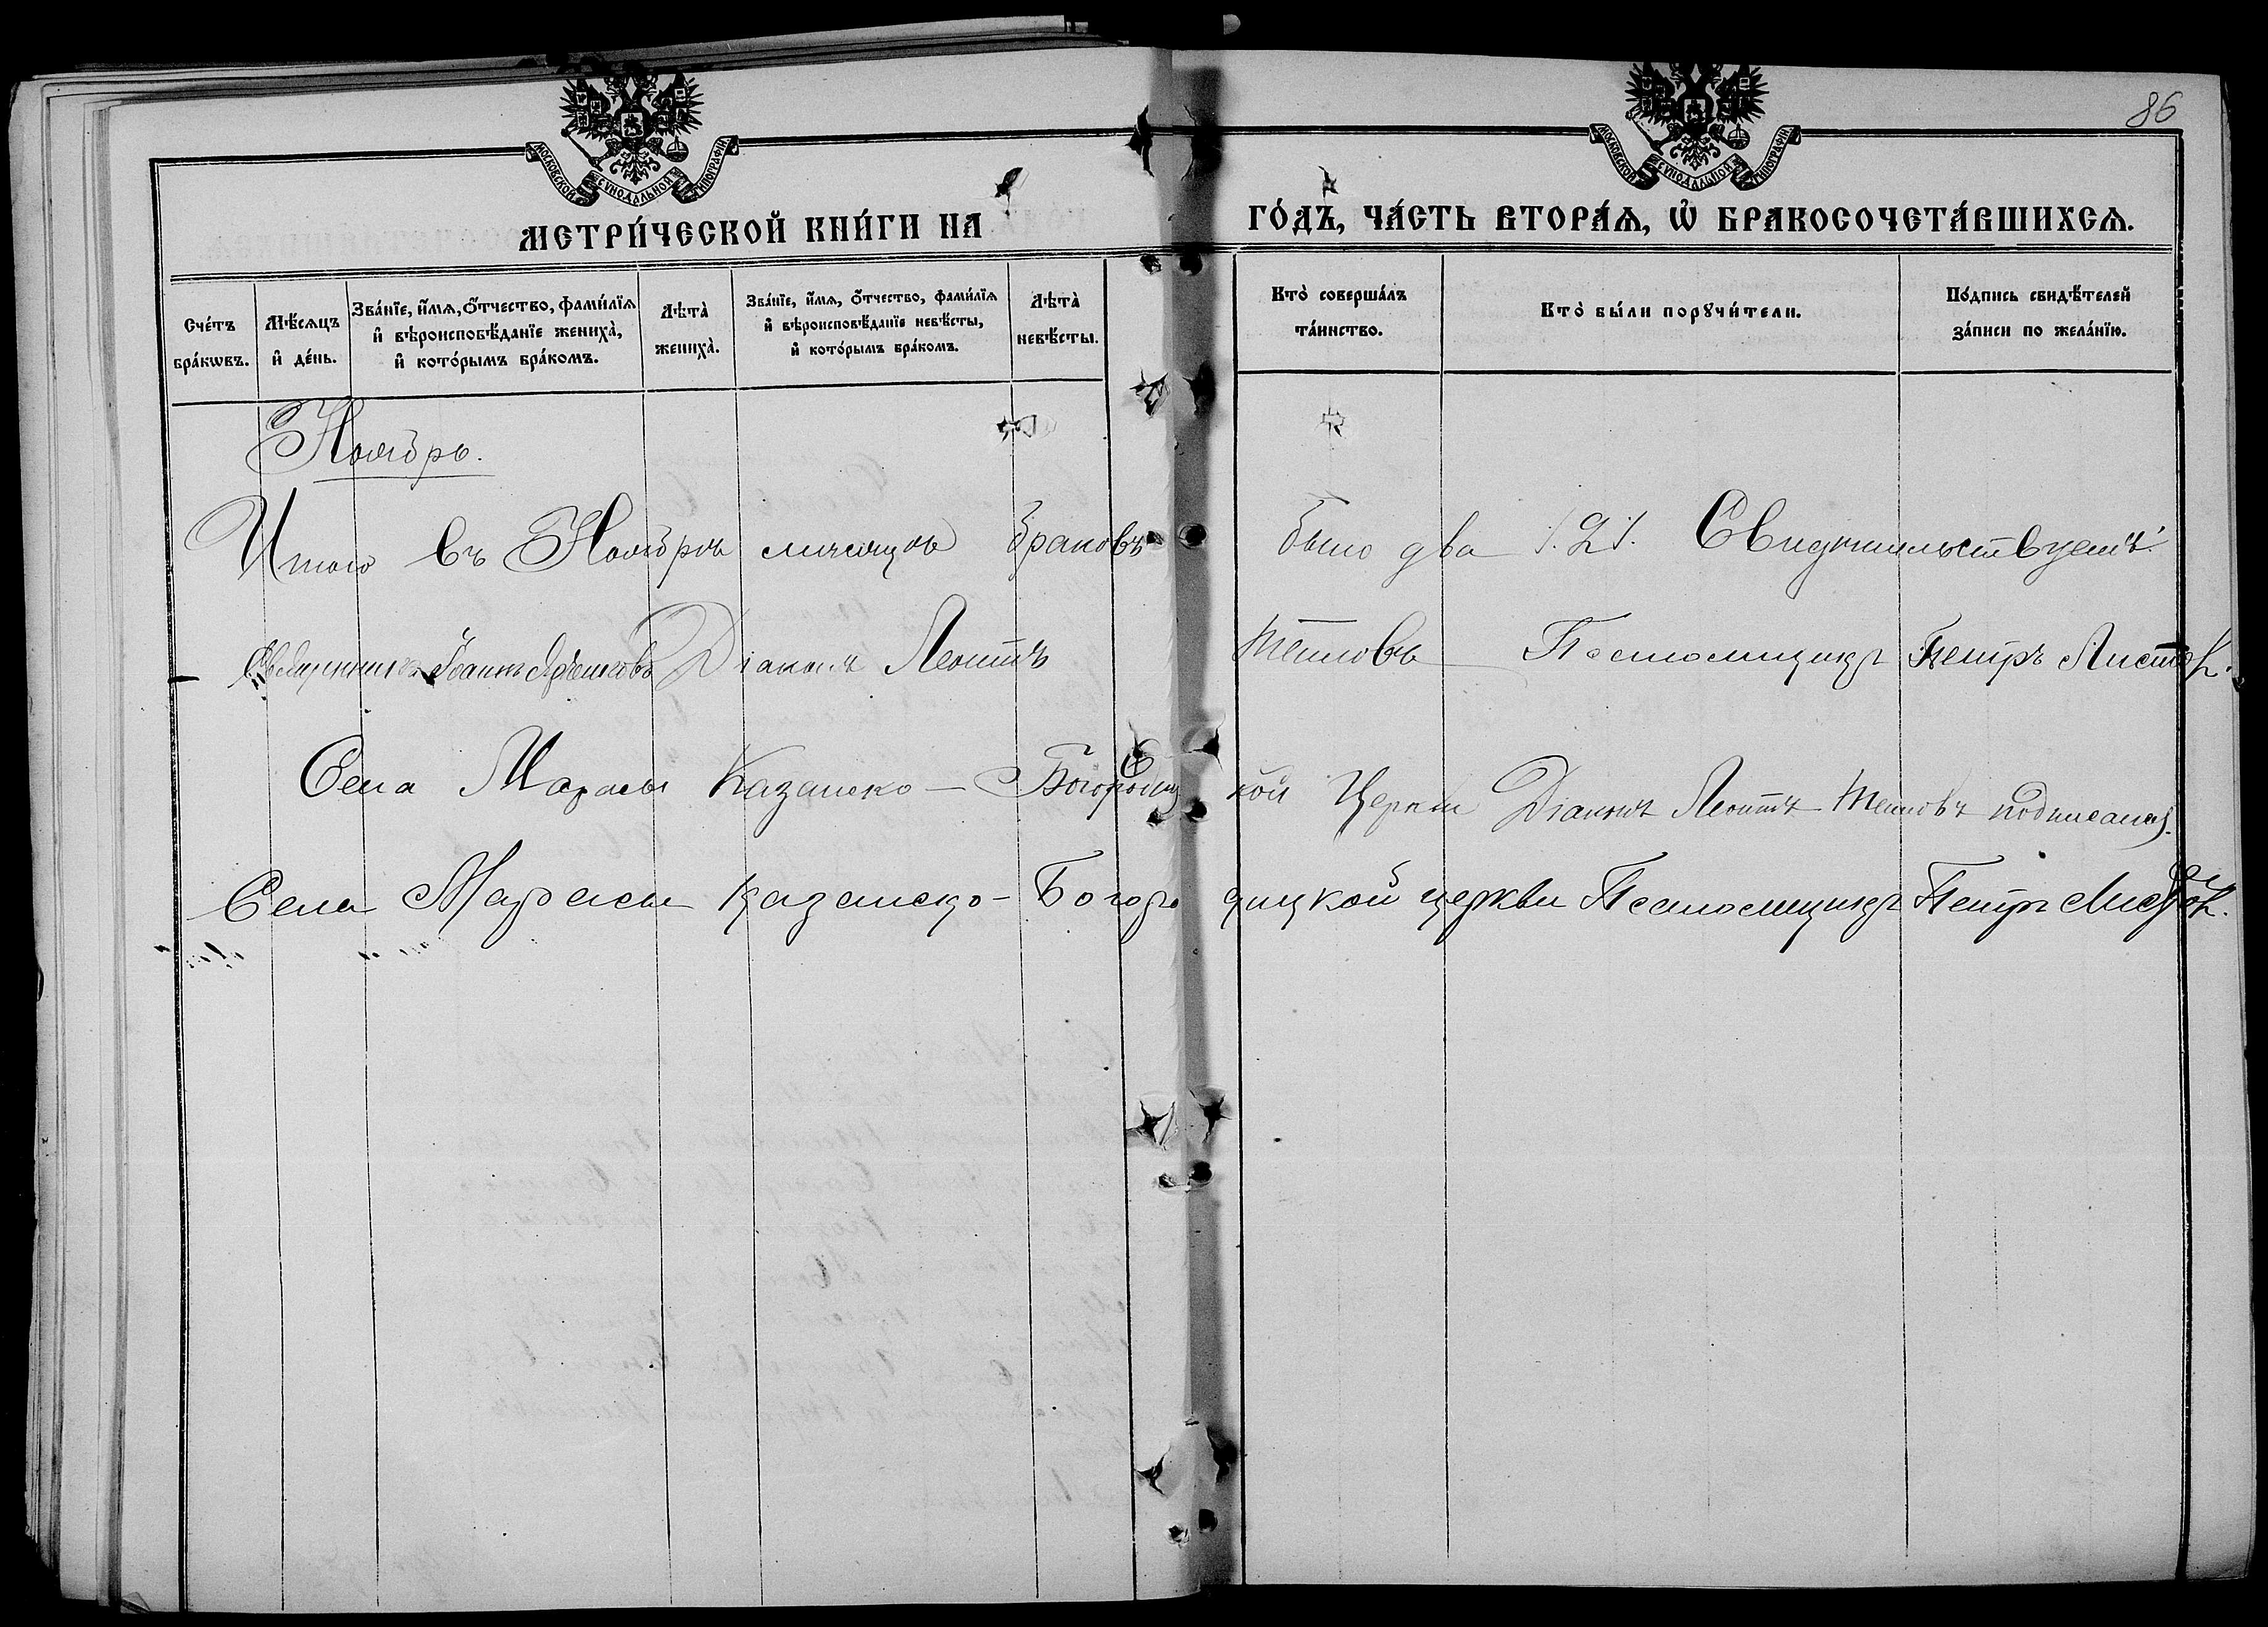 86
МОСКОВСКОЙ СУНОДАЛЬНОЙ ТИПОГРАФІИ
МОСКОВСКОЙ СУНОДАЛЬНОЙ ТИПОГРАФІИ
МЕТРИ́ЧЕСКОЙ КНИ́ГИ НА ГО́ДЪ, ЧА́СТЬ ВТОРА́Ѧ, Ѿ БРАКОСОЧЕТА́ВШИХСѦ.
Сче́тъ бра́кѡвъ.
Мѣ́сѧцъ и҆ де́нь.
Зва́нїе, и҆́мѧ, ѻ҆́тчество, фами́лїѧ и҆ вѣроисповѣ́данїе жениха̀, и҆ кото́рымъ бра́комъ.
Лѣта̀ жениха̀.
Зва́нїе, и҆́мѧ, ѻ҆́тчество, фами́лїѧ и҆ вѣроисповѣ́данїе невѣ́сты, и҆ кото́рымъ бра́комъ.
Лѣта̀ невѣ́сты.
Кто̀ соверша́лъ та́инство.
Кто̀ бы́ли порꙋчи́тели.
По́дпись свидѣ́телей за́писи по жела́нїю.
Ноябрь.
Итого въ Ноябрѣ мѣсяцѣ браковъ было два /.2/. Свидѣтельствуемъ:
Священникъ Іоаннъ Діаконъ Леонтъ Псаломщикъ Петръ Листок.
Села Марасы Казанско-Богородицкой Церкви Діаконъ Леонтъ подписался.
Села Марасы Казанско-Богородицкой церкви Псаломщикъ Петръ Листок.